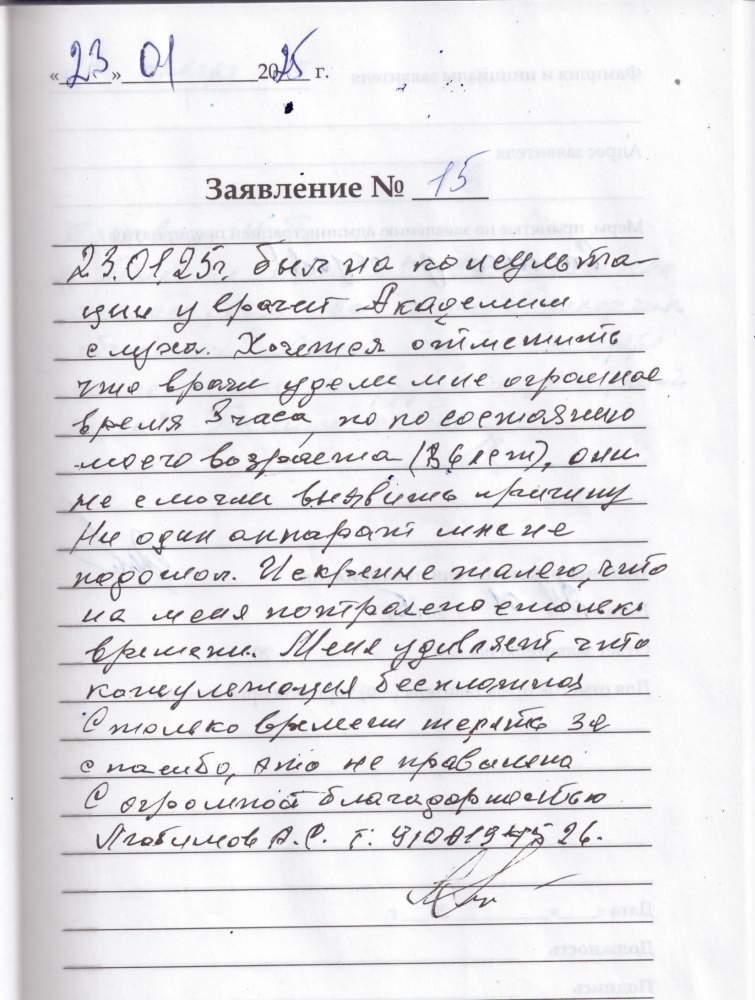 « 23 » 01 2025 г.
Заявление № 15
23.01.25г. был на консульта-
ции у врачей Академии
слуха. Хочется отметить
что врачи удели мне огромное
время 3 часа, но по состоянию
моего возраста (86 лет), они
не смогли выявить причину
Ни один аппарат мне не
подошол. Искренне жалею, что
на меня потрачено столько
времени. Меня удивляет, что
консультация бесплатная
Столько времени терять за
спасибо, это не правильно
С огромной благодарностью
Любимов А.С. т.